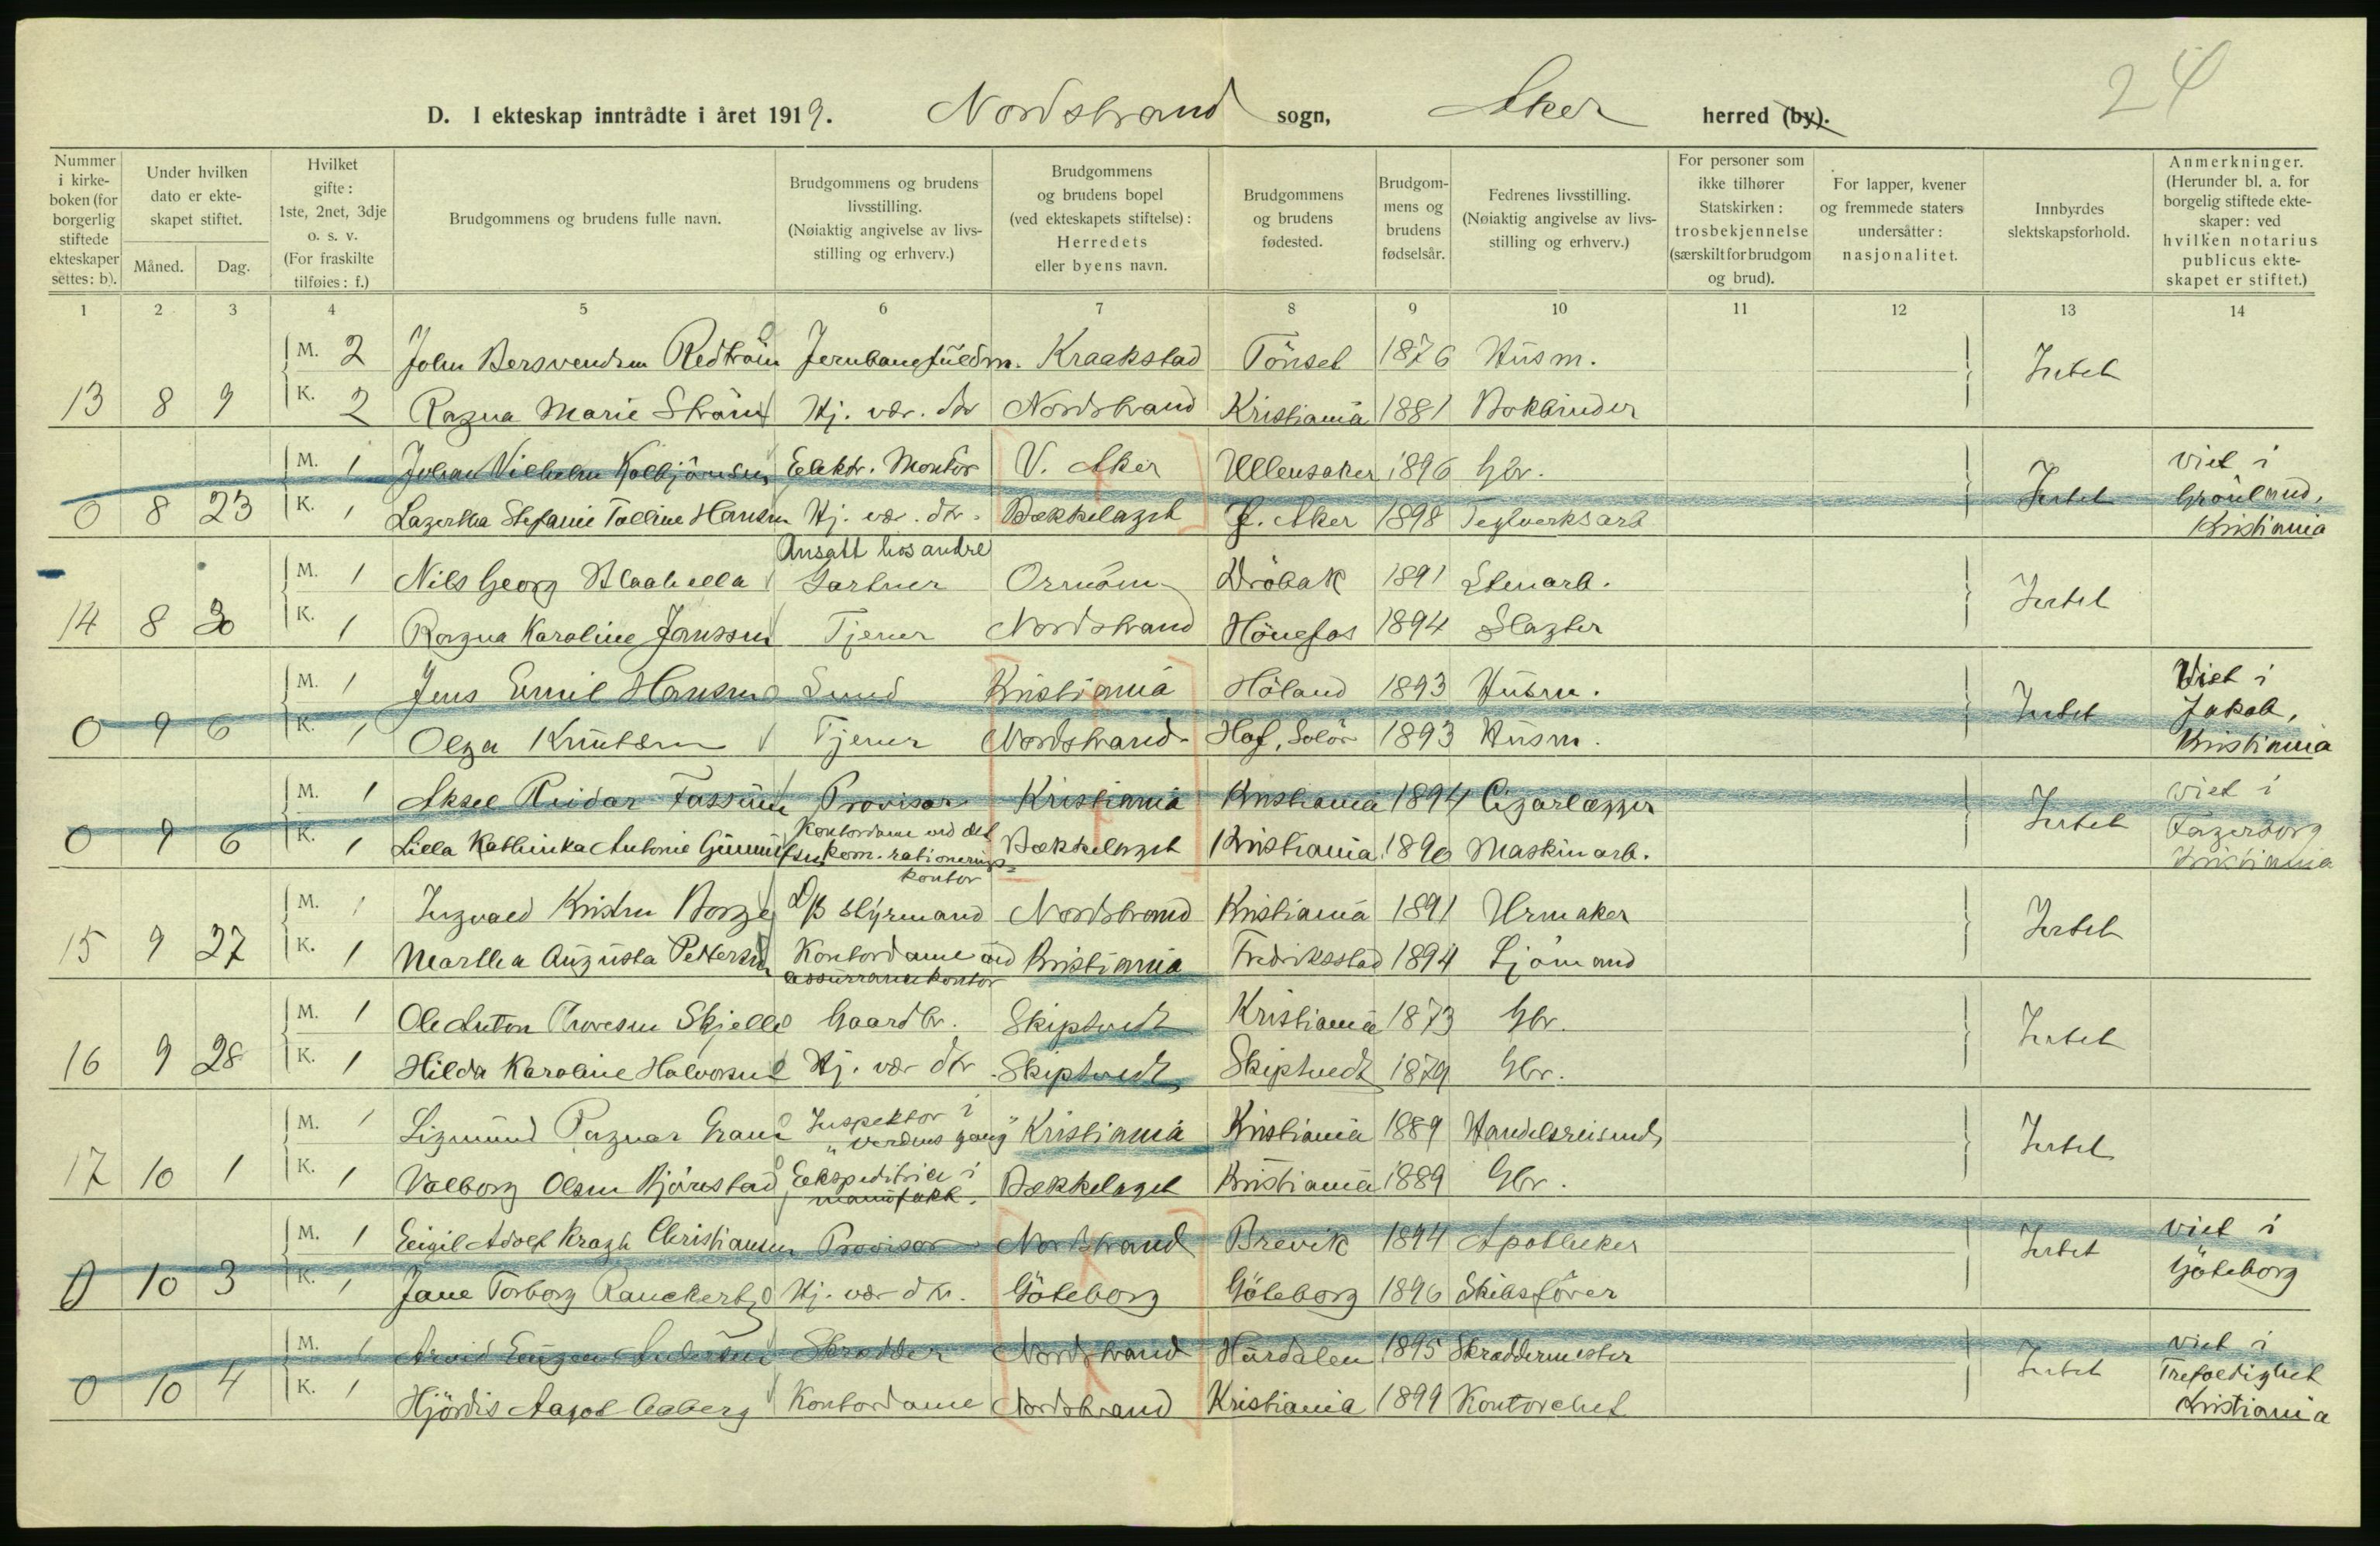 24
D. I ekteskap inntrådte i året 1919. Nordstrand sogn, Aker herred (by).
Nummer i kirkeboken (for borgerlig stiftede ekteskaper settes: b).
Under hvilken dato er ekteskapet stiftet.
Måned. Dag.
Hvilket gifte: 1ste, 2net, 3dje o. s. v. (For fraskilte tilføies: f.)
Brudgommens og brudens fulle navn.
Brudgommens og brudens livsstilling. (Nøiaktig angivelse av livsstilling og erhverv.)
Brudgommens og brudens bopel (ved ekteskapets stiftelse): Herredets eller byens navn.
Brudgommens og brudens fødested.
Brudgommens og brudens fødselsår.
Fedrenes livsstilling. (Nøiaktig angivelse av livsstilling og erhverv.)
For personer som ikke tilhører Statskirken: trosbekjennelse (særskilt for brudgom og brud).
For lapper, kvener og fremmede staters undersåtter: nasjonalitet.
Innbyrdes slektskapsforhold.
Anmerkninger. (Herunder bl. a. for borgelig stiftede ekteskaper: ved hvilken notarius publicus ekteskapet er stiftet.)
1 2 3 4 5 6 7 8 9 10 11 12 13 14
M. 2 John Bersvendsen Redtröm Jernbanefuldm. Kraakstad Tönset 1876 Husm. Intet
13 8 9 K. 2 Ragna Marie Ström Hj. vær. dtr Nordstrand Kristiania 1881 Bokbinder
M. 1 Johan Vilhelm Kolbjörnsen Elektr. Montör V. Aker Ullensaker 1896 Gbr. Intet viet i
0 8 23 K. 1 Lagertha Stefanie Talline Hansen Hj. vær. dtr. Bækkelaget Ø. Aker 1898 Teglverksarb Grönland, Kristiania
Ansatt hos andre
M. 1 Nils Georg Blaahella Gartner Ormöen Dröbak 1891 Stenarb. Intet
14 8 30 K. 1 Ragna Karoline Janssen Tjener Nordstrand Hönefos 1894 Slagter
M. 1 Jens Emil Hansen Smed Kristiania Höland 1893 Husm. Intet Viet i Jakob,
0 9 6 K. 1 Olga Knutsen Tjener Nordstrand Hof, Solör 1893 Husm. Kristiania
M. 1 Aksel Reidar Fossum Provisor Kristiania Kristiania 1894 Cigarlægger Intet viet i
0 9 6 K. 1 Lilla Kathinka Antonie Kontordame ved det kom. rationeringskontor Bækkelaget Kristiania 1890 Maskinarb. Fagerborg Kristiania
M. 1 Ingvald Kristen Borge D/S styrmand Nordstrand Kristiania 1891 Urmaker Intet
15 9 27 K. 1 Martha Augusta Pettersen Kontordame ved assurancekontor Kristiania Fredriksstad 1894 Sjömand
M. 1 Ole Anton Thovesen Skjelle Gaardbr. Skiptvedt Kristiania 1873 Gbr. Intet
16 9 28 K. 1 Hilda Karoline Halvorsen Hj. vær dtr Skiptvedt Skiptvedt 1879 Gbr.
M. 1 Sigmund Ragnar Gran Inspektor i "Verdens gang" Kristiania Kristiania 1889 Handelsreisende Intet
17 10 1 K. 1 Valborg Olsen Björnstad Ekspeditrice i manufakt. Bækkelaget Kristiania 1889 Gbr.
M. 1 Eigil Adolf Kragh Christiansen Provisor Nordstrand Brevik 1894 Apotheker Intet viet i
0 10 3 K. 1 Jane Torborg Hj. vær dtr. Göteborg Göteborg 1896 Skibsförer Göteborg
M. 1 Arvid Eugen Andersen Skrædder Nordstrand Hurdalen 1895 Skræddermester Intet viet i
0 10 4 K. 1 Hjördis Aagot Aaberg Kontordame Nordstrand Kristiania 1899 Kontorchef Trefoldighet Kristiania